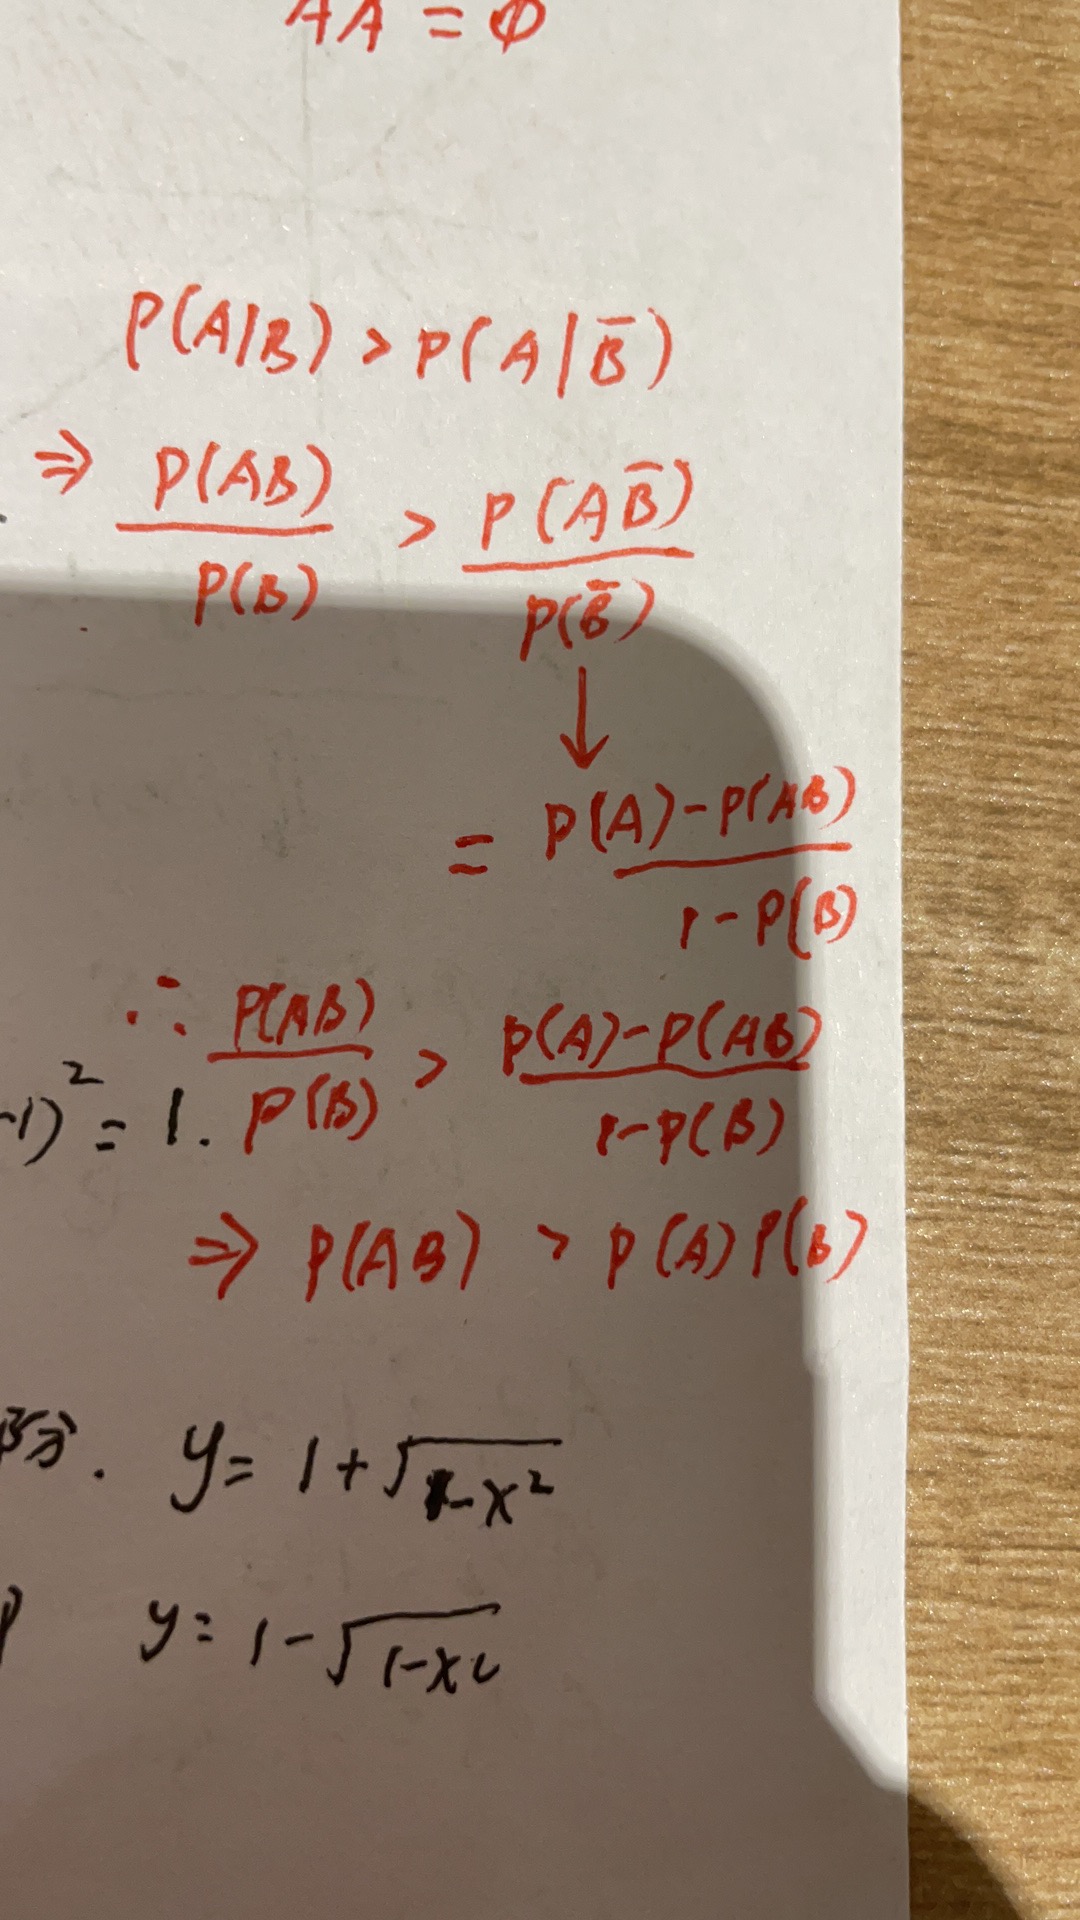 AA = Φ
P(A|B) > P(A|B̅)
⇒ P(AB)/P(B) > P(AB̅)/P(B̅)
↓
= P(A)-P(AB)/1-P(B)
∴ P(AB)/P(B) > P(A)-P(AB)/1-P(B)
-1)² = 1.
⇒ P(AB) > P(A)P(B)
部分. y = 1+√1-x²
y = 1-√1-x²